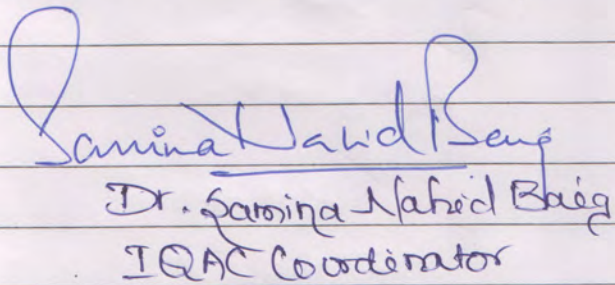 Samina Nahid Baig
Dr. Samina Nahid Baig
IQAC Coordinator